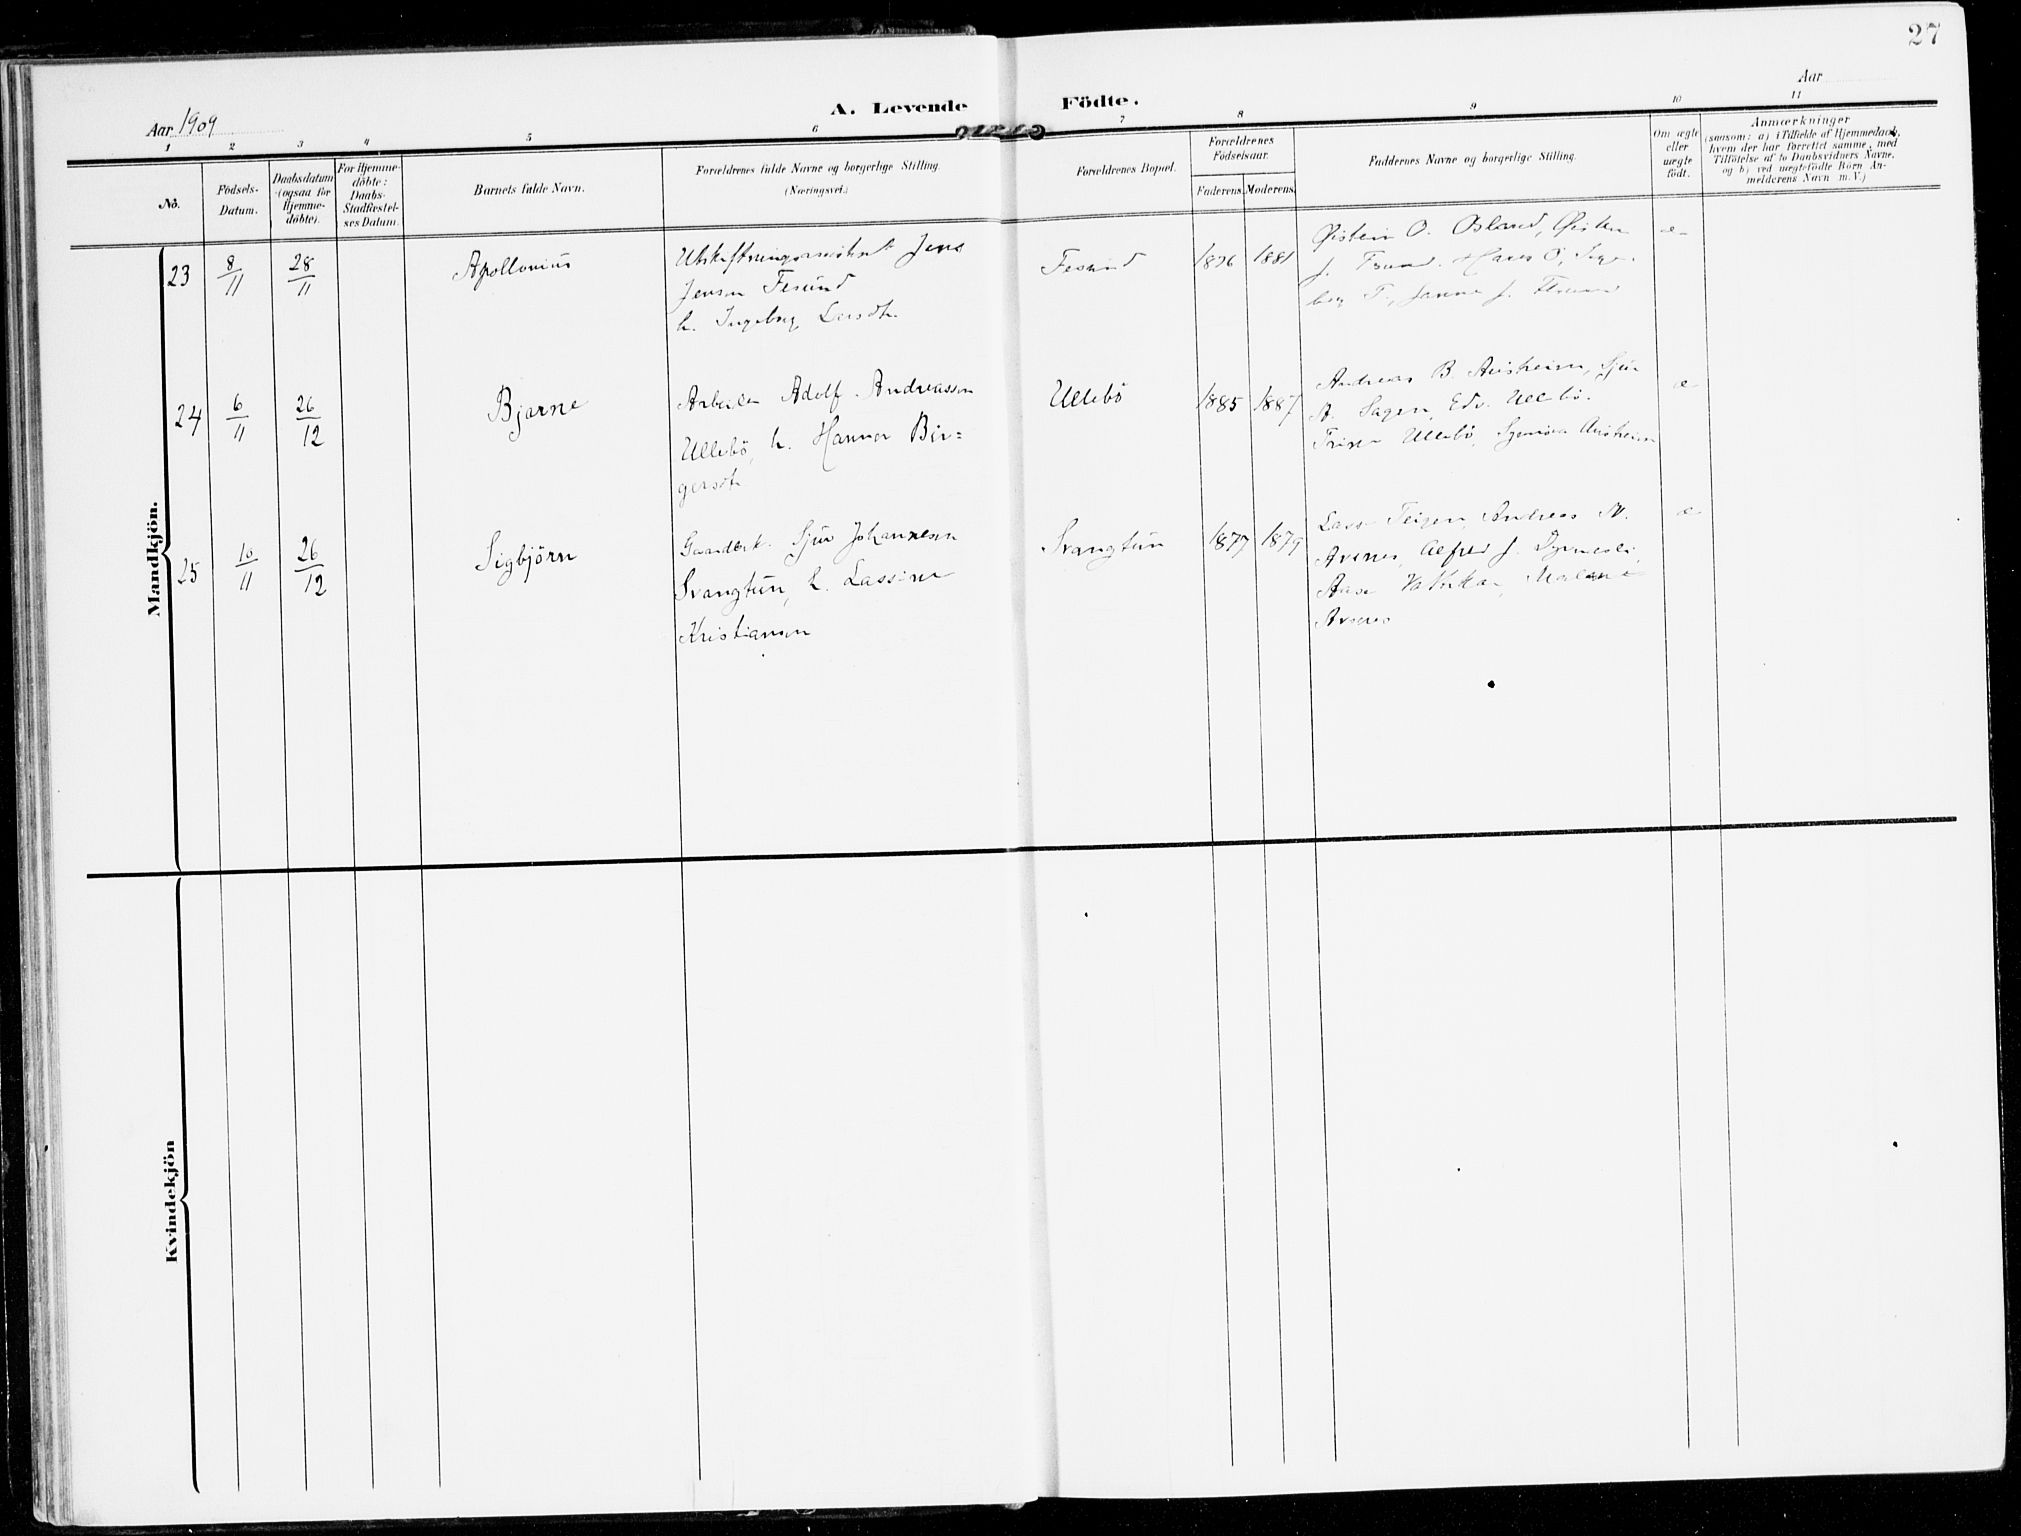 27
A. Levende Födte.
Aar 1909
Aar
1 2 3 4 5 6 7 8 9 10 11
No.
Födsels-
Datum.
Daabsdatum
(ogsaa for
Hjemme-
döbte).
For Hjemme-
döbte:
Daabs-
Stadfæstel-
ses Datum.
Barnets fulde Navn.
Forældrenes fulde Navne og borgerlige Stilling.
(Næringsvei.)
Forældrenes Bopæl.
Forældrenes
Födselsaar.
Faderens. Moderens.
Faddernes Navne og borgerlige Stilling.
Om ægte
eller
uægte
födt.
Anmærkninger
(saasom: a) i Tilfælde af Hjemmedaab,
hvem der har forrettet samme, med
Tilföielse af to Daabsvidners Navne,
og b) ved uægtefödte Börn An-
melderens Navn m. V.)
Mandkjön.
23 8/11 28/11 Apollonius
Jens
Jensen Fesund
h. Ingeborg Larsdt.
Fesund
1876 1881
Øistein O. Osland, Øisten
J. Hans O, Inge-
borg T., Janna J.
æ
24 6/11 26/12 Bjarne
Arbeider Adolf Andreassen
Ullebö, h. Hanna Bir-
gersdt.
Ullebö
1885 1887
Andreas B. Austreim, Sjur
A. Hagen, Edv. Ullebö.
Ullebö, Synnöva Austreim
æ
25 10/11 26/12 Sigbjörn
Gaardbr. Sjur Johannesen
Svangtun, h. Lassine
Kristiansen
Svangtun
1877 1879
Lasse Teigen, Andreas M.
Avenes, Alfred J. Dyrnesli
Aase Malene
Avenes
æ
Kvindekjön